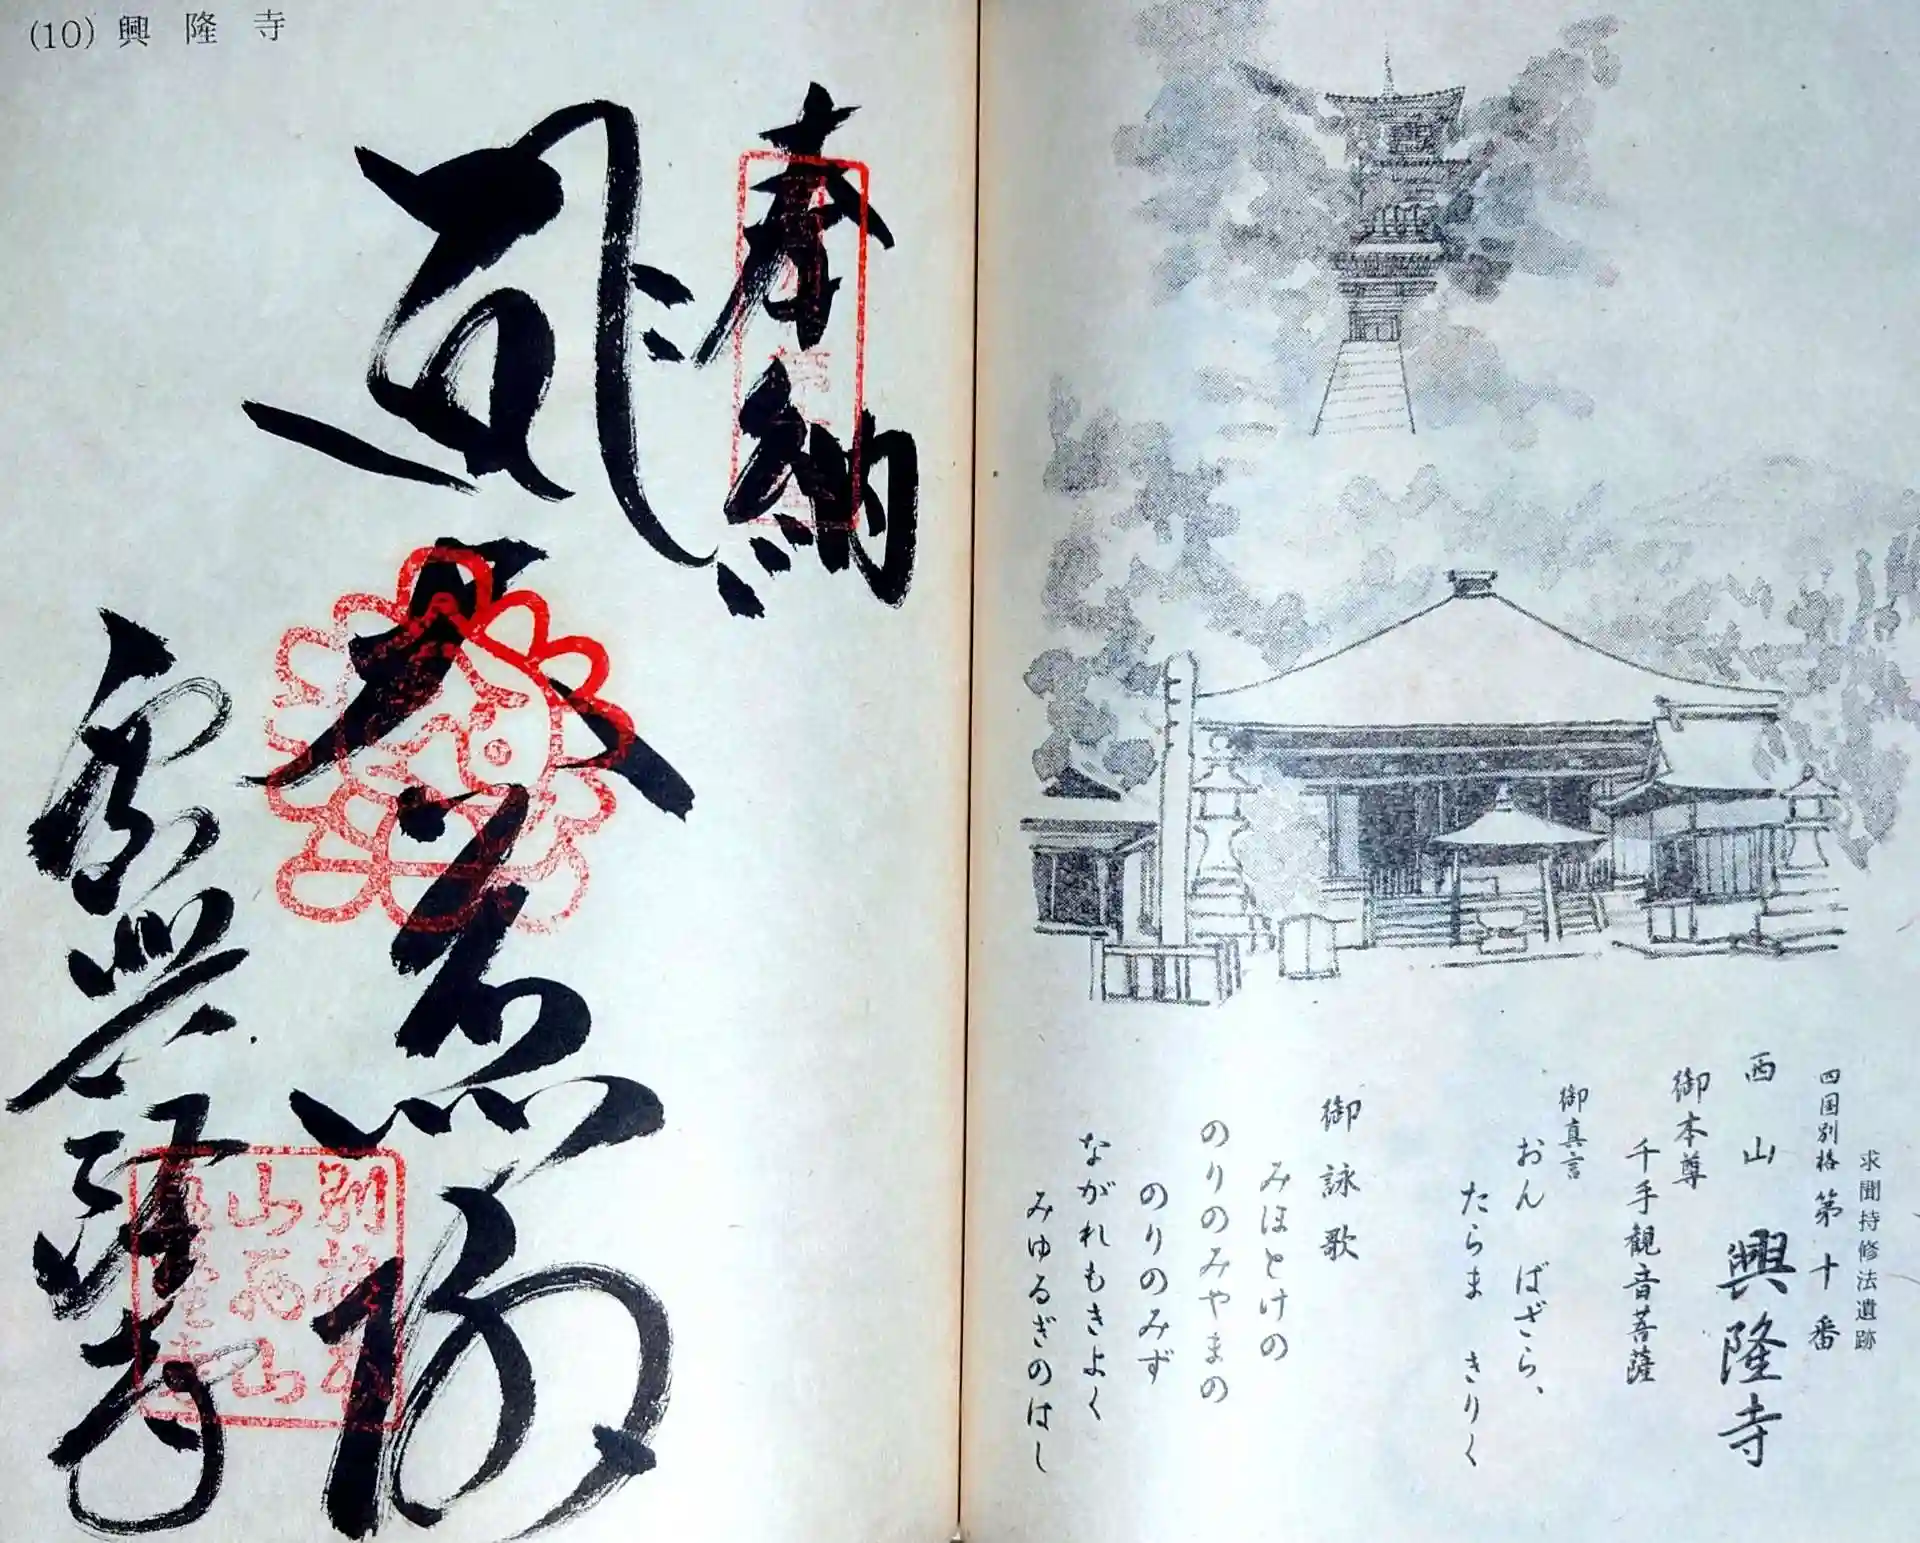 求聞持修法遺跡
四国別格第十番
西山興隆寺
御本尊
千手観音菩薩
御真言
おん ばざら、
たらま きりく
御詠歌
みほとけの
のりのみやまの
のりのみず
ながれもきよく
みゆるぎのはし
(10) 興隆寺
奉納
興隆寺
別格本
山西山
興隆寺